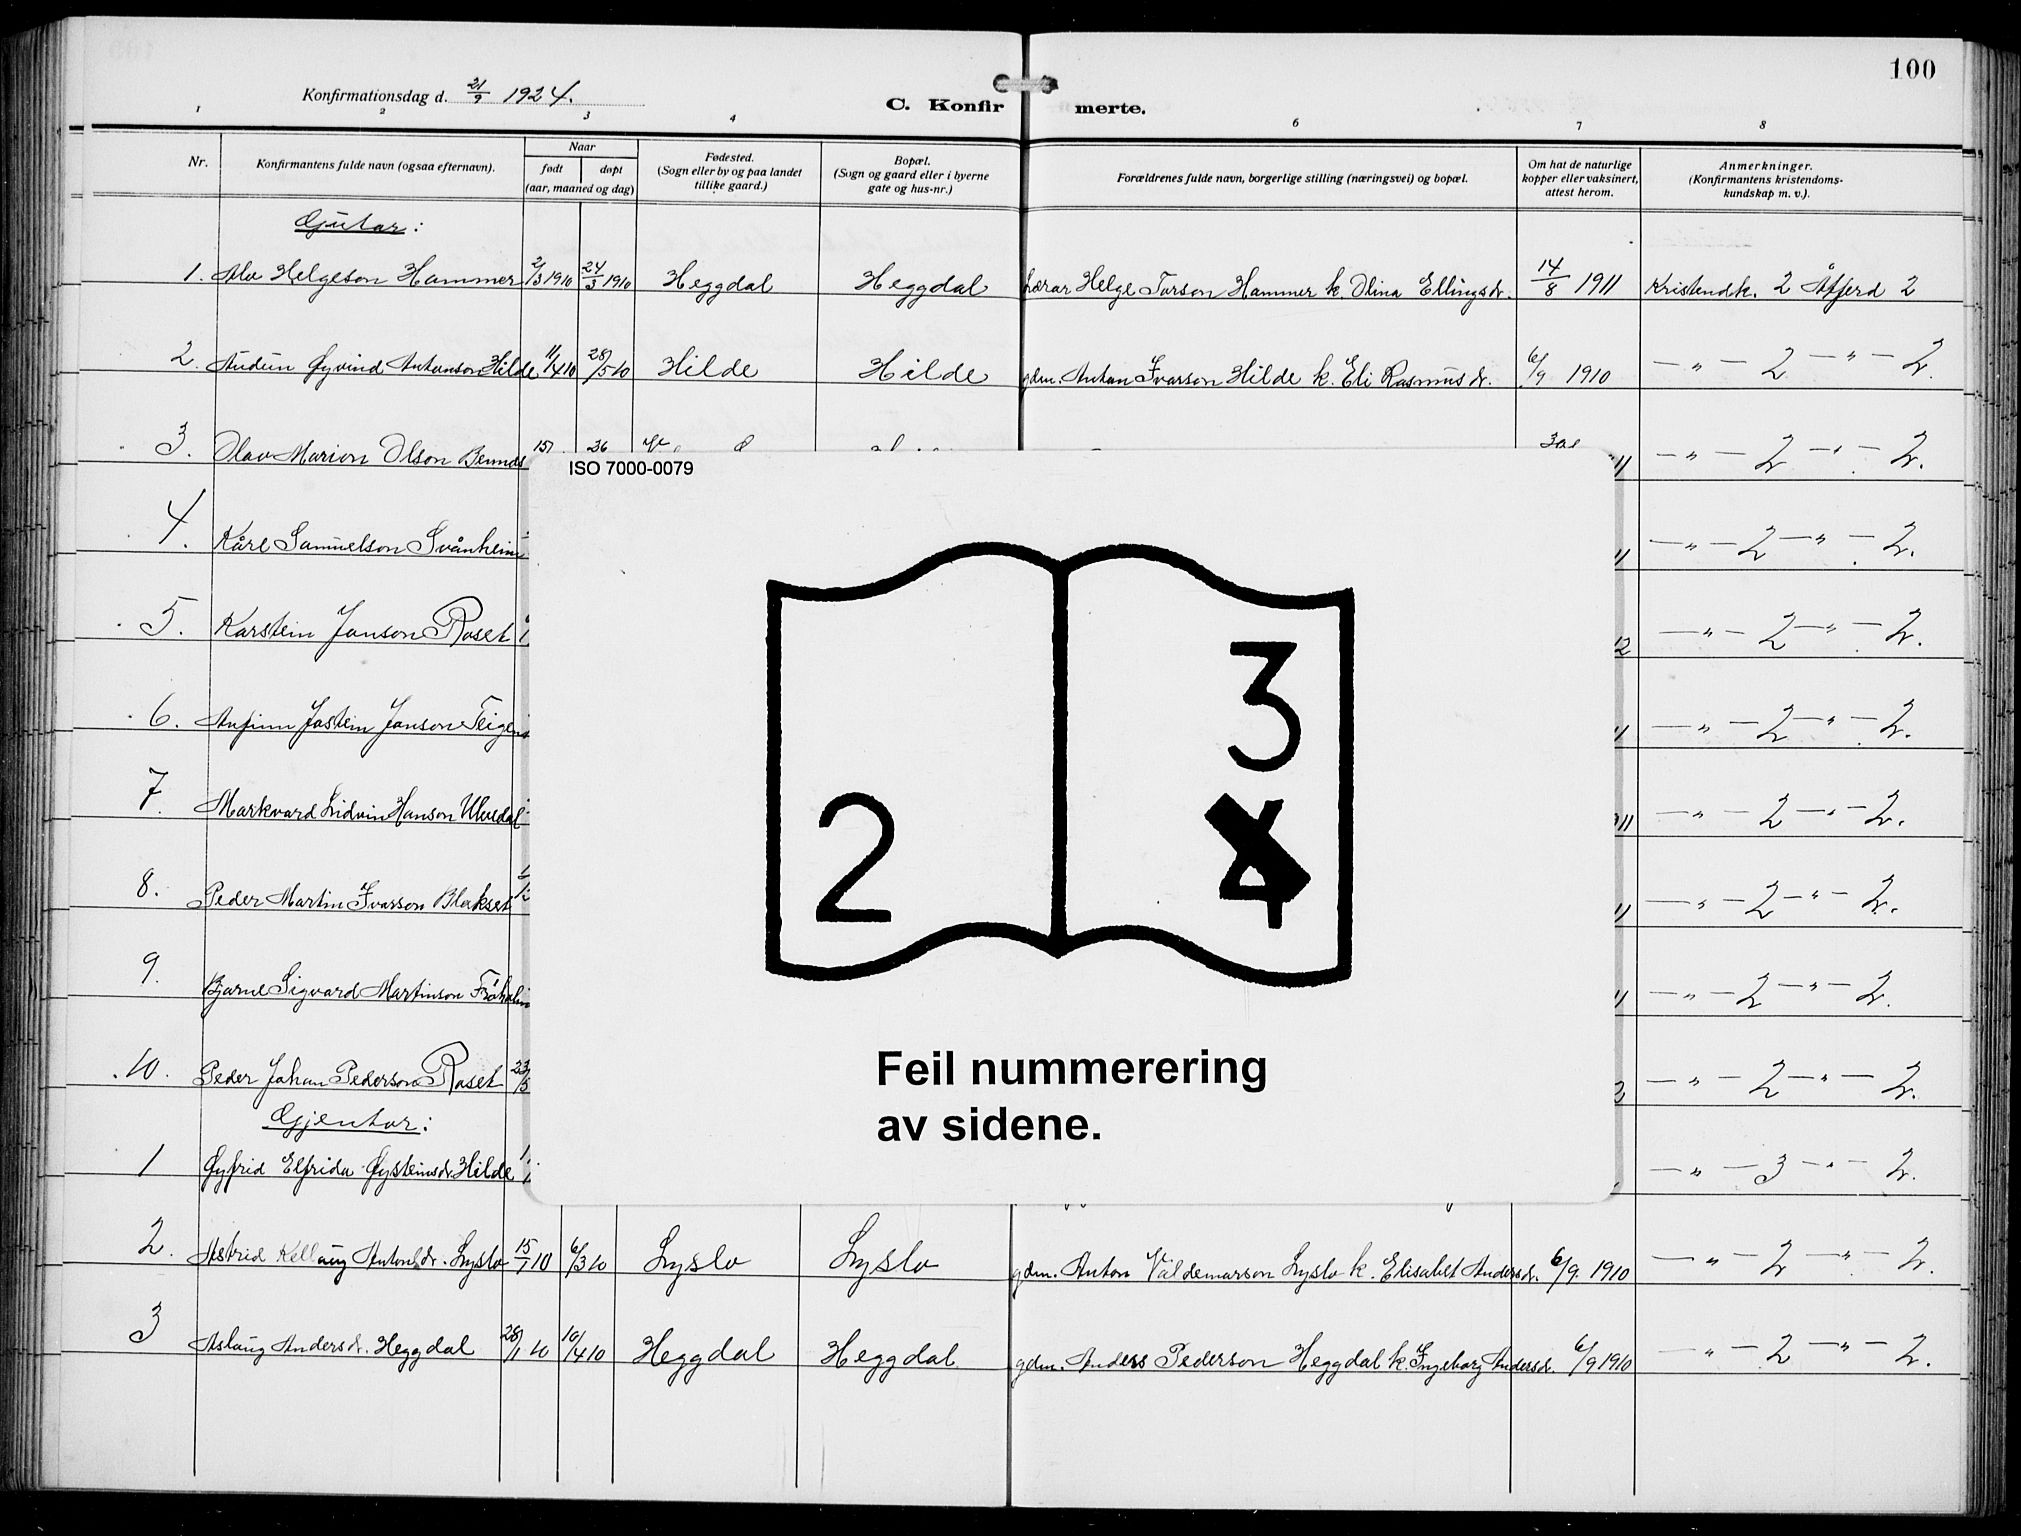 100
Konfirmationsdag d. 21/9 1924.
C. Konfirmerte.
1 2 3 4 6 7 8
Nr. Konfirmantens fulde navn (ogsaa efternavn). Naar født døpt (aar, maaned og dag) Fødested. (Sogn eller by og paa landet tillike gaard.) Bopæl. (Sogn og gaard eller i byerne gate og hus-nr.) Forældrenes fulde navn, borgerlige stilling (næringsvei) og bopæl. Om hat de naturlige kopper eller vaksinert, attest herom. Anmerkninger. (Konfirmantens kristendoms-kundskap m. v.).
Gutar:
1. Alv Helgeson Hammer 2/3 1910 24/3 1910 Heggdal Heggdal Lærar Helge Torson Hammer k. Olina Ellingsdr. 14/8 1911 Kristendk. 2 Åtferd 2
2. Audun Øyvind Antonson Hilde 11/4 10 28/5 10 Hilde Hilde gdm. Anton Ivarson Hilde k. Eli Rasmusdr. 6/9 1910 — " — 2 — " — 2.
3. Olav Marion Olson 15 26 — " — 2 — " — 2.
4. Kåre Samuelson Svånheim 11 — " — 2 — " — 2.
5. Karstein Jonson Roset 12 — " — 2 — " — 2.
6. Anfinn Jostein Jonson 11 — " — 2 — " — 2.
7. Markvard Lidvin Hanson 11 — " — 2 — " — 2.
8. Peder Martin Ivarson Blakset 11 — " — 2 — " — 2.
9. Bjarne Sigvard Martinson 11 — " — 2 — " — 2.
10. Peder Johan Pederson Roset 23/5 — " — 2 — " — 2.
Gjentor:
1 Øyfrid Elfrida Øysteinsdr. Hilde — " — 3 — " — 2.
2. Astrid Kellaug Antonsdr. Lyslo 15/1 10 6/3 10 Lyslo Lyslo gdm. Anton Valdemarson Lyslo k. Elisabet Andersdr. 6/9 1910 — " — 2 — " — 2.
3 Aslaug Andersdr. Heggdal 28/1 10 10/4 10 Heggdal Heggdal gdm. Anders Pederson Heggdal k. Ingeborg Andersdr. 6/9 1910 — " — 2 — " — 2.
ISO 7000-0079
2 3 4
Feil nummerering
av sidene.